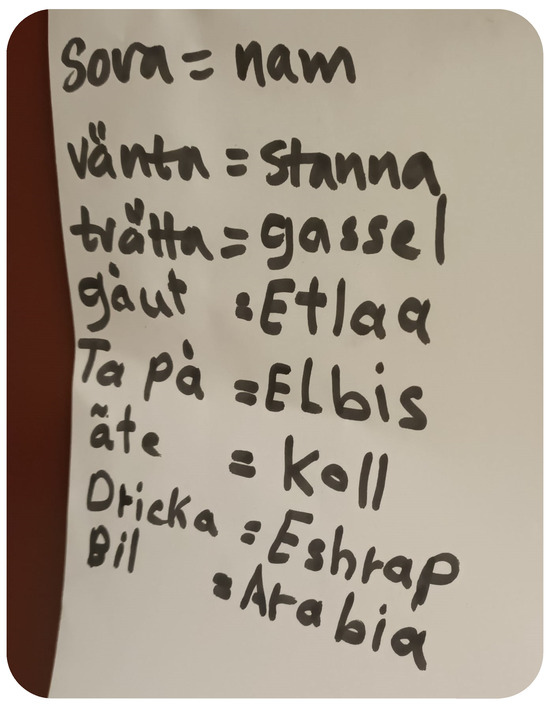 Sova = nam
vänta = stanna
trätta = gassel
gåut = Etlaa
Ta på = Elbis
äte = Koll
Dricka = Eshrap
Bil = Arabia